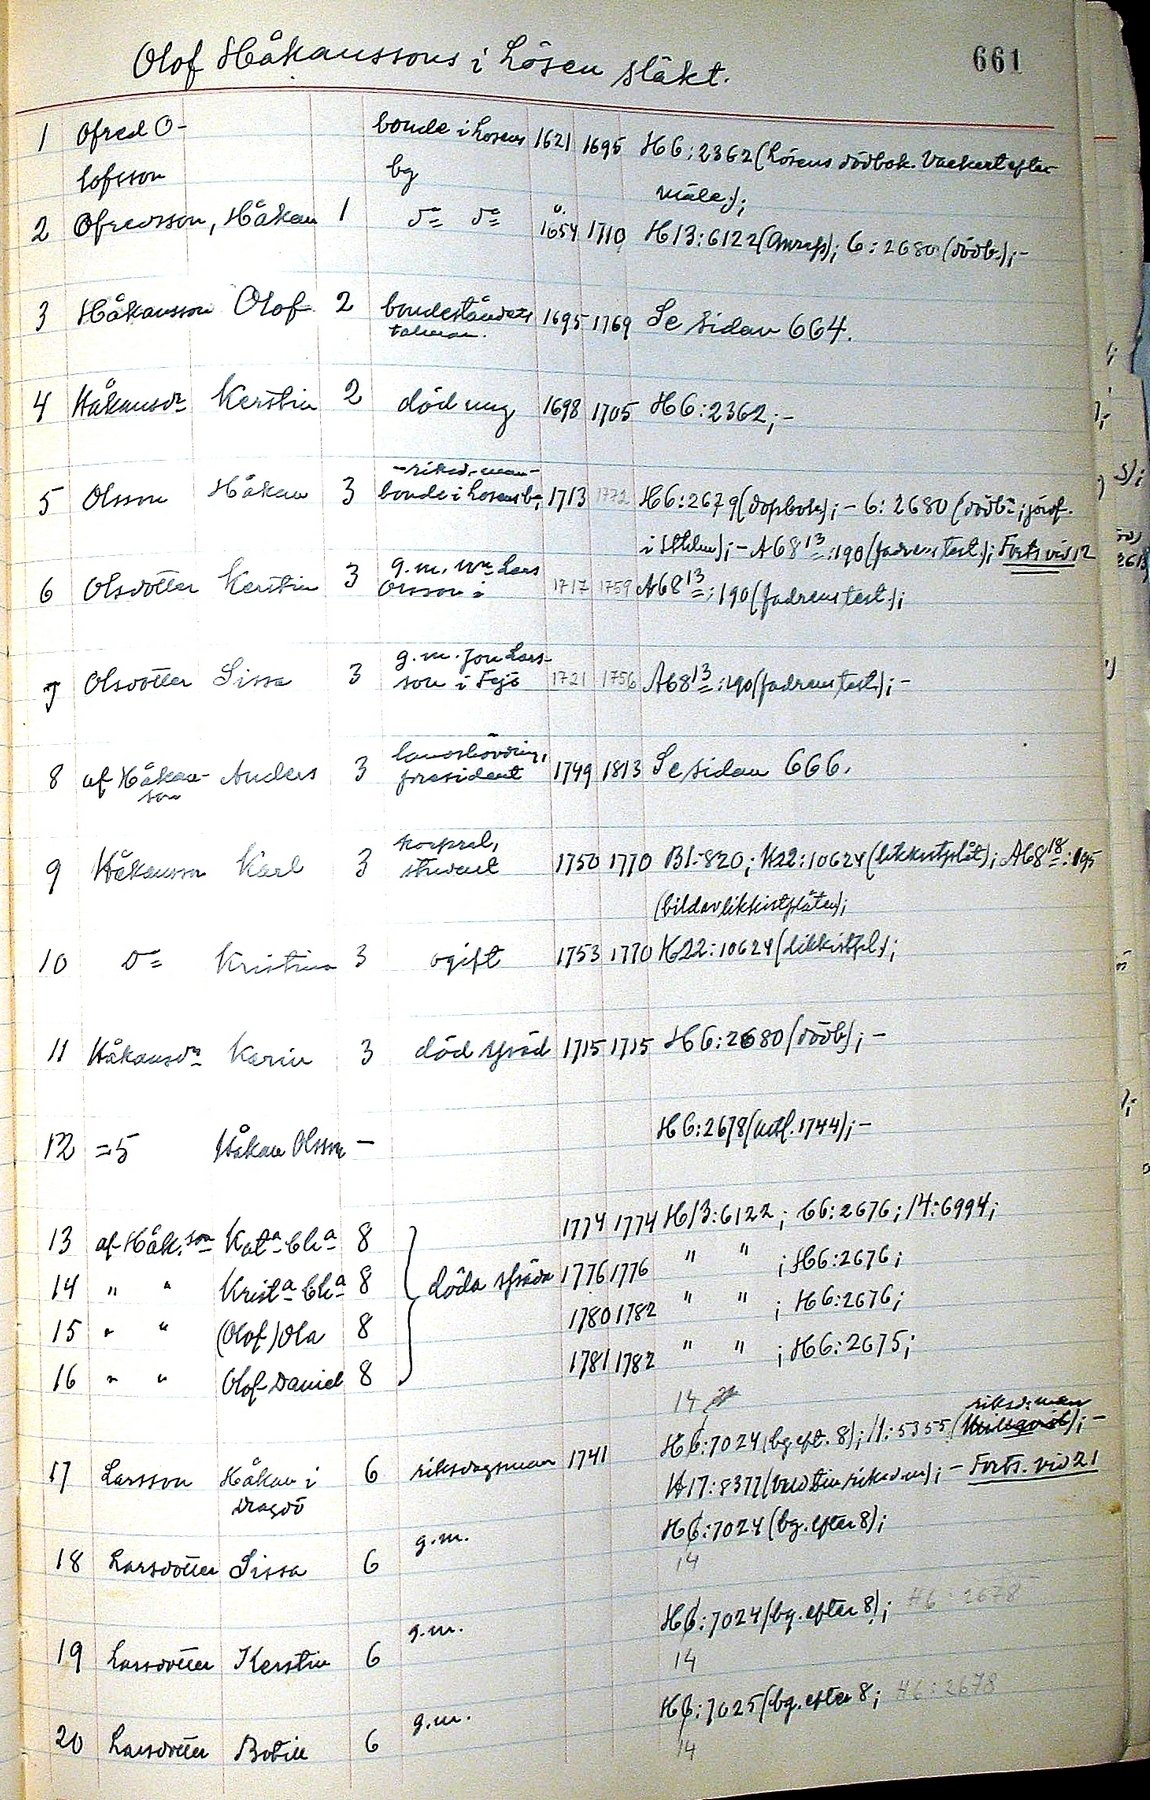 Olof Håkanssons i Lösen släkt.
661
1 Ofred O- bonde i Lösens 1621 1695 H6:2362 (Lösens dödbok. Vackert efter-
lofsson bg mäle);
2 Ofredsson, Håkan 1 do do 1654 1710 H13:6122 (Anreps); 6:2680 (dödb.);-
3 Håkansson Olof 2 bondeståndets 1695 1769 Se sidan 664.
talman.
4 Håkansdr Kerstin 2 död ung 1698 1705 H6:2362;-
-riksd.man-
5 Olsson Håkan 3 bonde i Lösens b, 1713 1772 H6:2679 (dopbok);- 6:2680 (dödb.; jordf.
i Stilen);- A68 13:190 (fadrens test.); Forts vid 12
6 Olsdotter Kerstin 3 g.m. Lars 1717 1759 A68 13:190 (fadrens test.);
7 Olsdotter Sissa 3 g.m. Jon Lars- 1721 1756 A68 13:190 (fadrens test.);-
son i
8 af Håkan- Anders 3 landshövding, 1749 1813 Se sidan 666.
son president
9 Håkansson Karl 3 korpral, 1750 1770 B1:820; H22:10624 (likkistplåt); A68 18:195
student (bild av likkistplåten);
10 Do Kristina 3 ogift 1753 1770 H22:10624 (likkistpl.);
11 Håkansdr Karin 3 död späd 1715 1715 H6:2680 (dödb);-
12 =5 Håkan Olsson - H6:2678 (utfl. 1744);-
13 af Håk.son Kata Cha 8 1774 1774 H13:6122; 66:2676; 14:6994;
14 " " Krista Cha 8 döda späda 1776 1776 " " ; H6:2676;
15 " " (Olof) Ola 8 1780 1782 " " ; H6:2676;
16 " " Olof Daniel 8 1781 1782 " " ; H6:2675;
14 riksd.man
17 Larsson Håkan i 6 riksdagsman 1741 H6:7024 (bg. eft. 8); 11:5355 ();-
Dragsö H17:8377 (riksd.m);- Forts. vid 21
18 Larsdotter Sissa 6 g.m. H6:7024 (bg. efter 8);
14
19 Larsdotter Kerstin 6 g.m. H6:7024 (bg. efter 8); H6:2678
14
20 Larsdotter Botill 6 g.m. H6:7025 (bg. efter 8; H6:2678
14